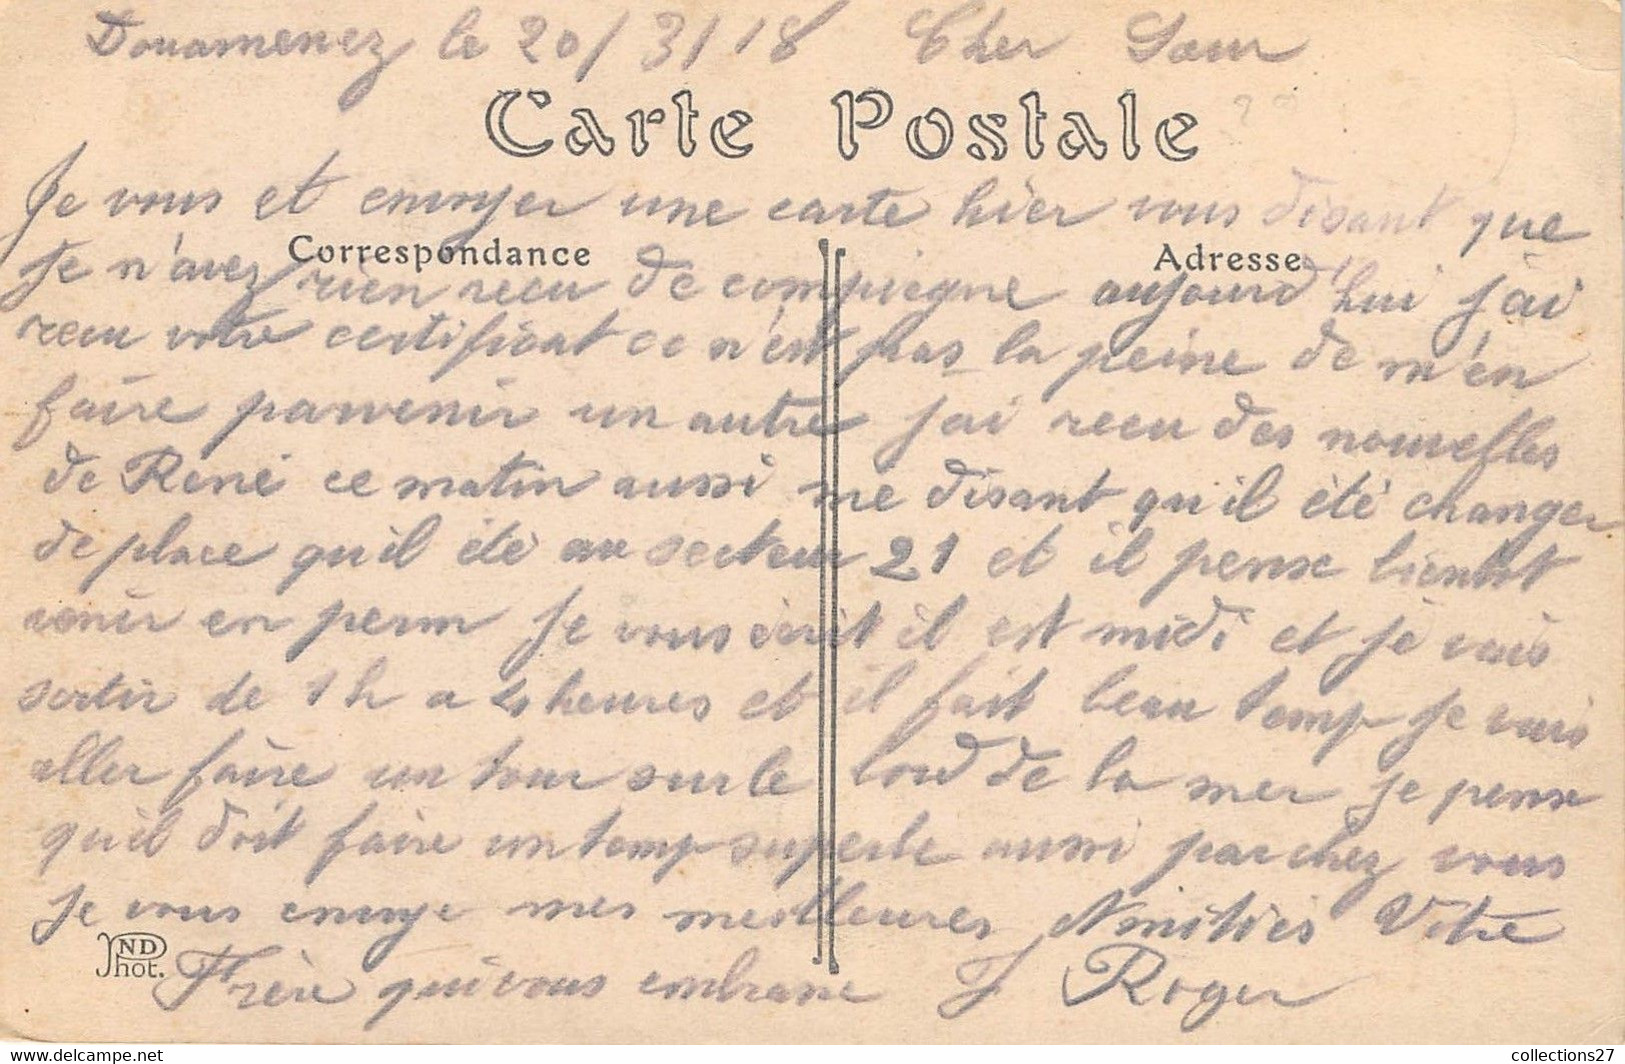 Douarnenez le 20/3/18 Cher Sœur
Carte Postale
Je vous et envoyer une carte hier vous disant que
Correspondance
Adresse
Je n'avez rien recu de compiegne aujourd'hui j'ai
recu votre certificat ce n'est pas la peine de m'en
faire parvenir un autre j'ai recu des nouvelles
de René ce matin aussi me disant qu'il été changer
de place qu'il été au secteur 21 et il pense bientot
venir en perm Je vous écrit il est midi et je vais
sortir de 1 h a 4 heures et il fait beau temp je vais
aller faire un tour sur le bord de la mer je pense
qu'il doit faire un temp superbe aussi par chez vous
Je vous envoye mes meilleures Amitiés Votre
ND Phot.
Frère qui vous embrasse Roger
collections27